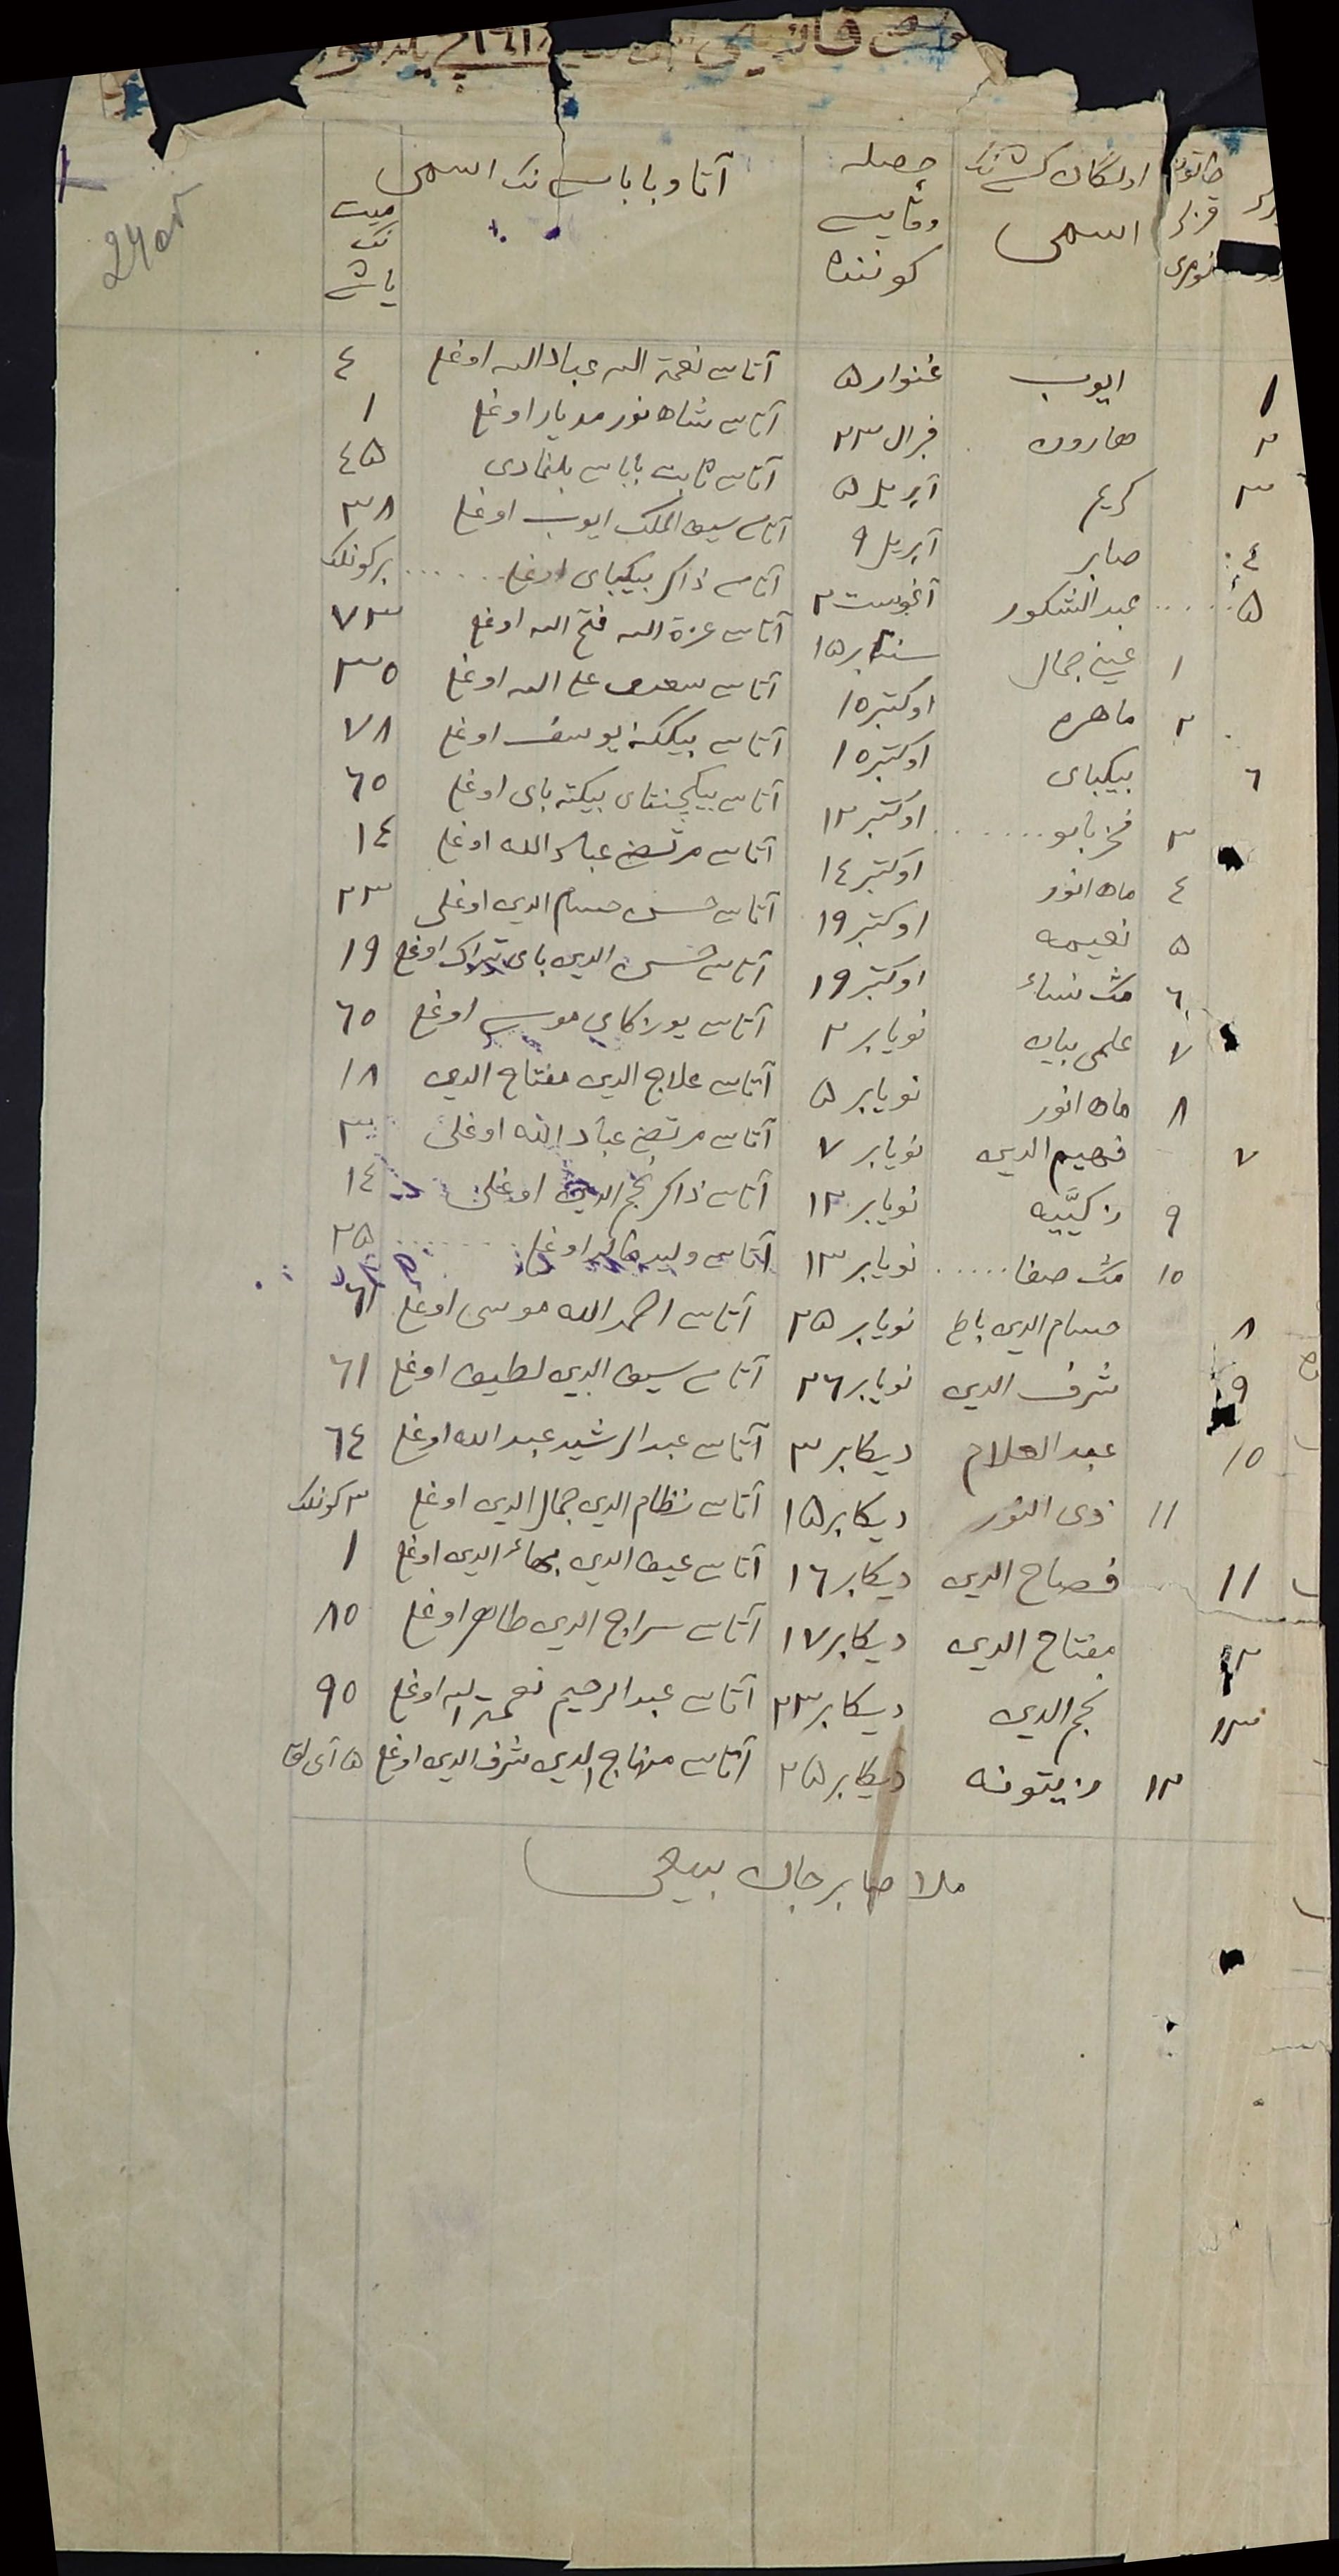 ١٩١٨
24об
خاتون قزلر نومری
اولگان کشی ننگ اسمی
حصله وفاتی کوننده
آتا و باباسی ننگ اسمی
میت ننگ یاشی
١ ایوب غنوار ۵ آتاسی نعمة الله عبادالله اوغلی ٤
٢ هارون فرال ٢٣ آتاسی شاه نور مدیار اوغلی ١
٣ کریم آپریل ۵ آتاسی ثابت باباسی بلنمادی ٤۵
٤ صابر آپریل ٩ آتاسی سیف الملک ایوب اوغلی ٣٨
۵ عبد الشکور آغوست ٢ آتاسی ذاکر بیکبای اوغلی برکونلک
١ عینی جمال سنتابر ١۵ آتاسی عزة الله فتح الله اوغلی ٧٣
٢ ماهره اوکتبر ١٥ آتاسی سعدی علی الله اوغلی ٣٥
٦ بیکبای اوکتبر ١٥ آتاسی بیککنه یوسف اوغلی ٧٨
٣ فخر بانو اوکتبر ١٢ آتاسی بیکچنتای بیکته بای اوغلی ٦٥
٤ ماه انور اوکتبر ١٤ آتاسی مرتضی عبادالله اوغلی ١٤
۵ نعیمه اوکتبر ١٩ آتاسی حسن حسام الدین اوغلی ٢٣
٦ مشک نساء اوکتبر ١٩ آتاسی شمس الدین بای تراک اوغلی ١٩
٧ علمی بیان نویابر ٢ آتاسی یوزکای موسی اوغلی ٦٥
٨ ماه انور نویابر ۵ آتاسی علاج الدین مفتاح الدین ١٨
٧ فهیم الدین نویابر ٧ آتاسی مرتضی عبادالله اوغلی ٣
٩ زکییه نویابر ١٢ آتاسی ذاکر نجم الدین اوغلی ١٤
١٥ مشک صفا نویابر ١٣ آتاسی ولید خالد اوغلی ٢۵
٨ حسام الدین باطر نویابر ٢۵ آتاسی احمد الله موسی اوغلی ٦١
٩ شرف الدین نویابر ٢٦ آتاسی سیف الدین لطیف اوغلی ٦١
١٥ عبد العلام دیکابر ٣ آتاسی عبد الرشید عبد الله اوغلی ٦٤
١١ ذی النور دیکابر ١۵ آتاسی نظام الدین جمال الدین اوغلی ٣ کونلک
١١ فصاح الدین دیکابر ١٦ آتاسی عیف الدین بهاء الدین اوغلی ١
١٢ مفتاح الدین دیکابر ١٧ آتاسی سراج الدین طاهر اوغلی ٨٥
١٣ نجم الدین دیکابر ٢٣ آتاسی عبد الرحیم نعمة الله اوغلی ٩٥
١٢ زیتونه دیکابر ٢۵ آتاسی منهاج الدین شرف الدین اوغلی ۵ آی لق
ملا صابرجان بیعی